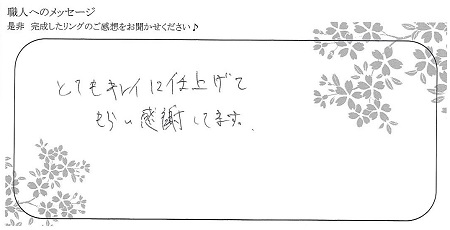 職人へのメッセージ
是非 完成したリングのご感想をお聞かせください♪
とてもキレイに仕上げて
もらい感謝してます。